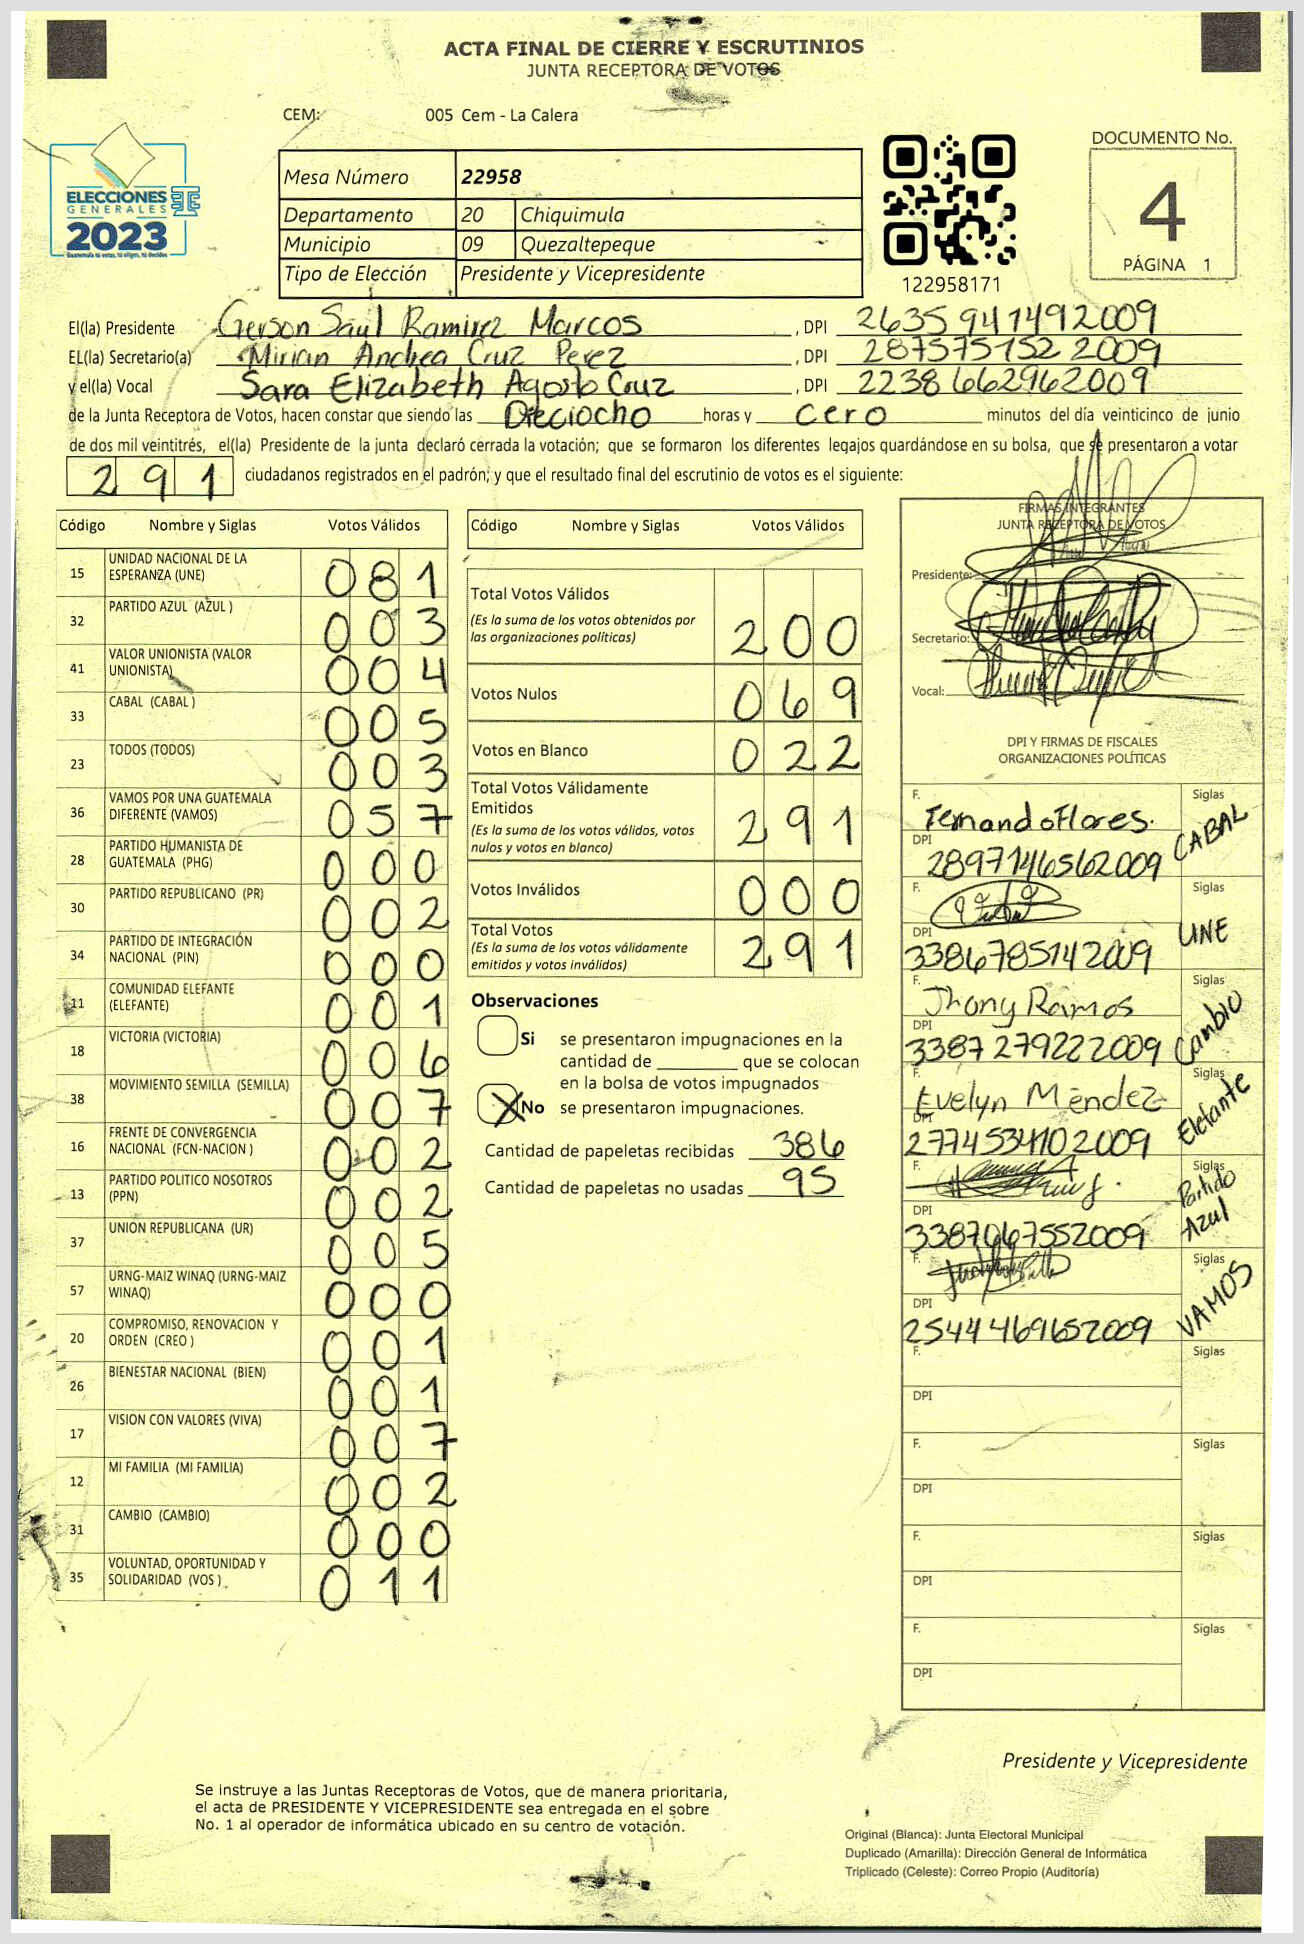 ACTA FINAL DE CIERRE Y ESCRUTINIOS
JUNTA RECEPTORA DE VOTOS
CEM: 005 Cem - La Calera
ELECCIONES
GENERALES
2023
Guatemala tú votas, tú eliges, tú decides
Mesa Número 22958
Departamento 20 Chiquimula
Municipio 09 Quezaltepeque
Tipo de Elección Presidente y Vicepresidente
122958171
DOCUMENTO No.
4
PÁGINA 1
El(la) Presidente Gerson Saúl Ramirez Marcos , DPI 2635941492009
EL(la) Secretario(a) Mirian Andrea Cruz Perez , DPI 2875751522009
y el(la) Vocal Sara Elizabeth Agosto Cruz , DPI 2238662962009
de la Junta Receptora de Votos, hacen constar que siendo las Dieciocho horas y cero minutos del día veinticinco de junio
de dos mil veintitrés, el(la) Presidente de la junta declaró cerrada la votación; que se formaron los diferentes legajos quardándose en su bolsa, que se presentaron a votar
291 ciudadanos registrados en el padrón; y que el resultado final del escrutinio de votos es el siguiente:
Código Nombre y Siglas Votos Válidos
15 UNIDAD NACIONAL DE LA ESPERANZA (UNE) 081
32 PARTIDO AZUL (AZUL ) 003
41 VALOR UNIONISTA (VALOR UNIONISTA) 004
33 CABAL (CABAL ) 005
23 TODOS (TODOS) 003
36 VAMOS POR UNA GUATEMALA DIFERENTE (VAMOS) 057
28 PARTIDO HUMANISTA DE GUATEMALA (PHG) 000
30 PARTIDO REPUBLICANO (PR) 002
34 PARTIDO DE INTEGRACIÓN NACIONAL (PIN) 000
11 COMUNIDAD ELEFANTE (ELEFANTE) 001
18 VICTORIA (VICTORIA) 006
38 MOVIMIENTO SEMILLA (SEMILLA) 007
16 FRENTE DE CONVERGENCIA NACIONAL (FCN-NACION ) 002
13 PARTIDO POLITICO NOSOTROS (PPN) 002
37 UNION REPUBLICANA (UR) 005
57 URNG-MAIZ WINAQ (URNG-MAIZ WINAQ) 000
20 COMPROMISO, RENOVACION Y ORDEN (CREO ) 001
26 BIENESTAR NACIONAL (BIEN) 001
17 VISION CON VALORES (VIVA) 007
12 MI FAMILIA (MI FAMILIA) 002
31 CAMBIO (CAMBIO) 000
35 VOLUNTAD, OPORTUNIDAD Y SOLIDARIDAD (VOS ) 011
Código Nombre y Siglas Votos Válidos
Total Votos Válidos 200
(Es la suma de los votos obtenidos por
las organizaciones políticas)
Votos Nulos 069
Votos en Blanco 022
Total Votos Válidamente
Emitidos 291
(Es la suma de los votos válidos, votos
nulos y votos en blanco)
Votos Inválidos 000
Total Votos 291
(Es la suma de los votos válidamente
emitidos y votos inválidos)
Observaciones
Si se presentaron impugnaciones en la
cantidad de ________ que se colocan
en la bolsa de votos impugnados
X No se presentaron impugnaciones.
Cantidad de papeletas recibidas 386
Cantidad de papeletas no usadas 95
FIRMAS INTEGRANTES
JUNTA RECEPTORA DE VOTOS
Presidente:
Secretario:
Vocal:
DPI Y FIRMAS DE FISCALES
ORGANIZACIONES POLÍTICAS
F. Fernando Flores. Siglas CABAL
DPI 2897146562009
F. Siglas UNE
DPI 3386785142009
F. Jhony Ramos Siglas Cambio
DPI 3387279222009
F. Evelyn Méndez Siglas Elefante
DPI 2774534102009
F. Siglas Partido Azul
DPI 3387067552009
F. Siglas VAMOS
DPI 2544469652009
F. Siglas
DPI
F. Siglas
DPI
F. Siglas
DPI
F. Siglas
DPI
Presidente y Vicepresidente
Se instruye a las Juntas Receptoras de Votos, que de manera prioritaria,
el acta de PRESIDENTE Y VICEPRESIDENTE sea entregada en el sobre
No. 1 al operador de informática ubicado en su centro de votación.
Original (Blanca): Junta Electoral Municipal
Duplicado (Amarilla): Dirección General de Informática
Triplicado (Celeste): Correo Propio (Auditoría)